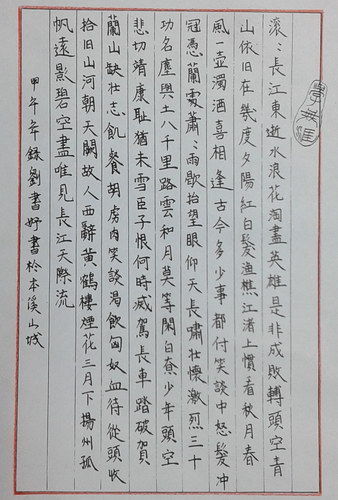 滾〻長江東逝水浪花淘盡英雄是非成敗轉頭空青
山依旧在幾度夕陽紅白髮漁樵江渚上慣看秋月春
風一壺濁酒喜相逢古今多少事都付笑談中怒髮沖
冠憑蘭處蕭〻雨歇抬望眼仰天長嘯壯懷激烈三十
功名塵與土八千里路雲和月莫等閑白尞少年頭空
悲切靖康恥猶未雪臣子恨何時滅駕長車踏破賀
蘭山缺壯志飢餐胡虜肉笑談渴飲匈奴血待從頭收
拾旧山河朝天闕故人西辭黃鶴樓煙花三月下揚州孤
帆遠影碧空盡唯見長江天際流
甲午年錄劉書妤書於本溪山城